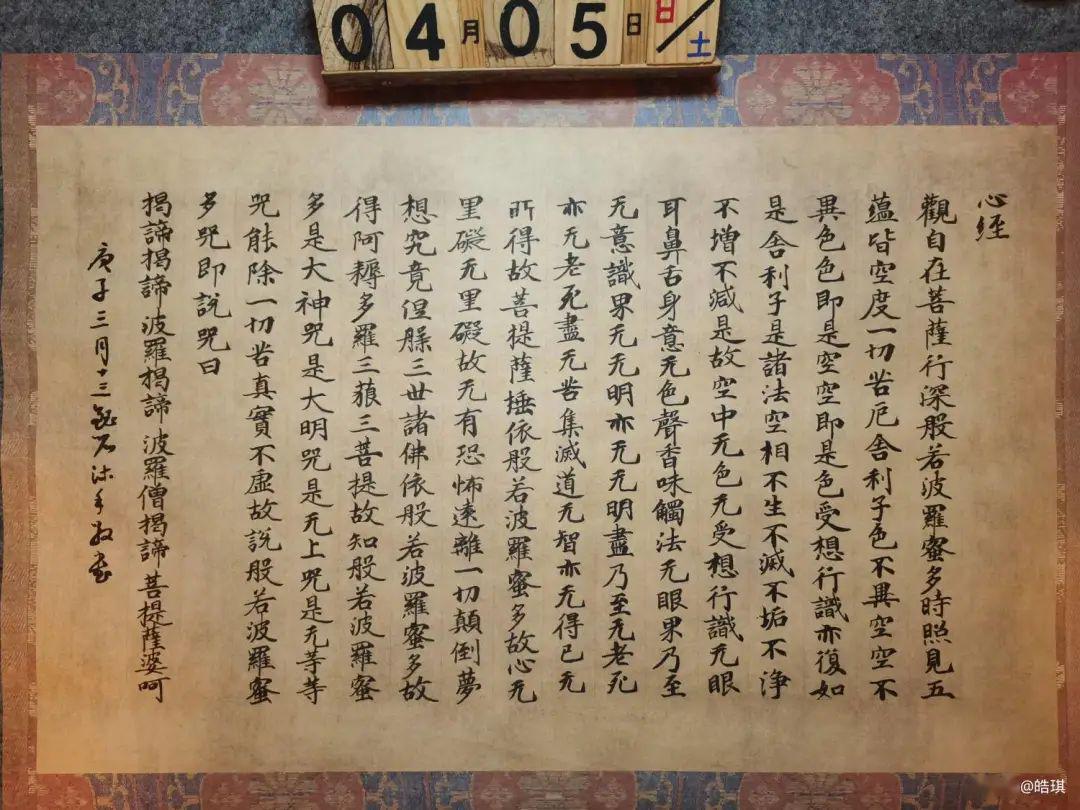 04月05日 日/土
心經
觀自在菩薩行深般若波羅蜜多時照見五
蘊皆空度一切苦厄舍利子色不異空空不
異色色即是空空即是色受想行識亦復如
是舍利子是諸法空相不生不滅不垢不淨
不增不減是故空中无色无受想行識无眼
耳鼻舌身意无色聲香味觸法无眼界乃至
无意識界无无明亦无无明盡乃至无老死
亦无老死盡无苦集滅道无智亦无得已无
所得故菩提薩埵依般若波羅蜜多故心无
罣礙无罣礙故无有恐怖遠離一切顛倒夢
想究竟涅槃三世諸佛依般若波羅蜜多故
得阿耨多羅三藐三菩提故知般若波羅蜜
多是大神咒是大明咒是无上咒是无等等
咒能除一切苦真實不虛故說般若波羅蜜
多咒即說咒曰
揭諦揭諦波羅揭諦波羅僧揭諦菩提薩婆呵
庚子三月十三
@皓琪